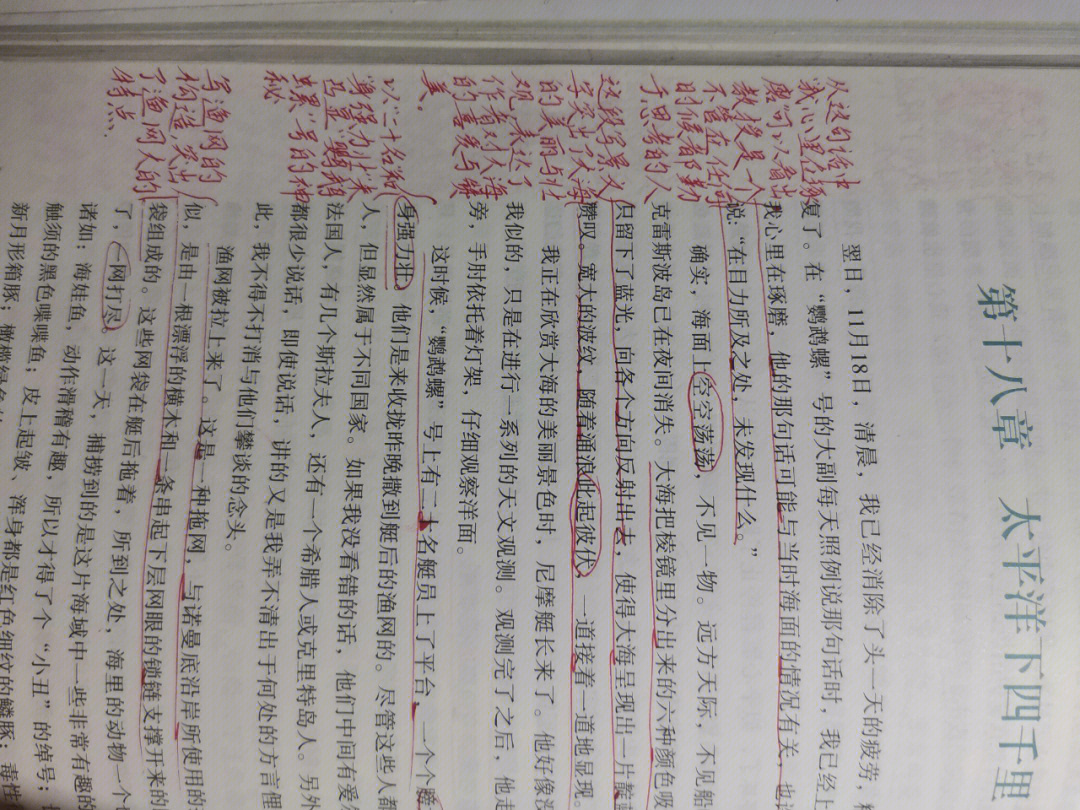 第十八章 太平洋下四千里
翌日，11月18日，清晨，我已经消除了头一天的疲劳，
复了。在“鹦鹉螺”号的大副每天照例说那句话时，我已经上
我心里在琢磨，他的那句话可能与当时海面的情况有关，也
说：“在目力所及之处，未发现什么。”
确实，海面上空空荡荡，不见一物。远方天际，不见船
克雷斯波岛已在夜间消失。大海把棱镜里分出来的六种颜色吸
只留下了蓝光，向各个方向反射出去，使得大海呈现出一片
赞叹。宽大的波纹，随着涌浪此起彼伏，一道接着一道地显现。
我正在欣赏大海的美丽景色时，尼摩艇长来了。他好像没
我似的，只是在进行一系列的天文观测。观测完了之后，他走
旁，手肘依托着灯架，仔细观察洋面。
这时候，“鹦鹉螺”号上有二十名艇员上了平台，一个个
身强力壮。他们是来收拢昨晚撒到艇后的渔网的。尽管这些人都
人，但显然属于不同国家。如果我没看错的话，他们中间有爱
法国人，有几个斯拉夫人，还有一个希腊人或克里特岛人。另外
都很少说话，即使说话，讲的又是我弄不清出于何处的方言俚
此，我不得不打消与他们攀谈的念头。
渔网被拉上来了。这是一种拖网，与诺曼底沿岸所使用的
似，是由一根漂浮的横木和一条串起下层网眼的锁链支撑开来的
袋组成的。这些网袋在艇后拖着，所到之处，海里的动物一个
了，一网打尽。这一天，捕捞到的是这片海域中一些非常有趣的
诸如：海蛙鱼，动作滑稽有趣，所以才得了个“小丑”的绰号；
触须的黑色喋喋鱼；皮上起皱、浑身都是红色细纹的鳞豚；毒性
新月形箱豚；橄榄绿色的
从这句话中
我心里在琢
磨可以看出
教授是一个
不管在任何
时候都勤
于思考的人
这段写景文
字突出了大海
的美丽与壮
观，表达了
作者对大海
的喜爱与赞
美。
以“二十名
身强力壮”来
凸显“鹦鹉
螺”号的神
秘
写渔网的
构造，突出
了渔网大的
特点。